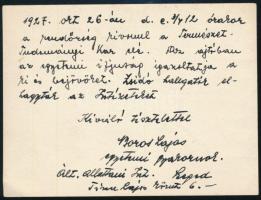 1927. okt 26-án d. e. 3/4 12 órakor
a rendőrség kivonul a Természet-
tudományi Kar elé. Az ajtóban
az egyetemi ifjúság igazoltatja a
ki és bejövőket. Zsidó hallgatók el-
hagyták az Intézeteket
Kiváló tisztelettel
Boros Lajos
egyetemi gyakornok.
Ált. Állattani Int. Szeged
Tisza Lajos körút 6. —